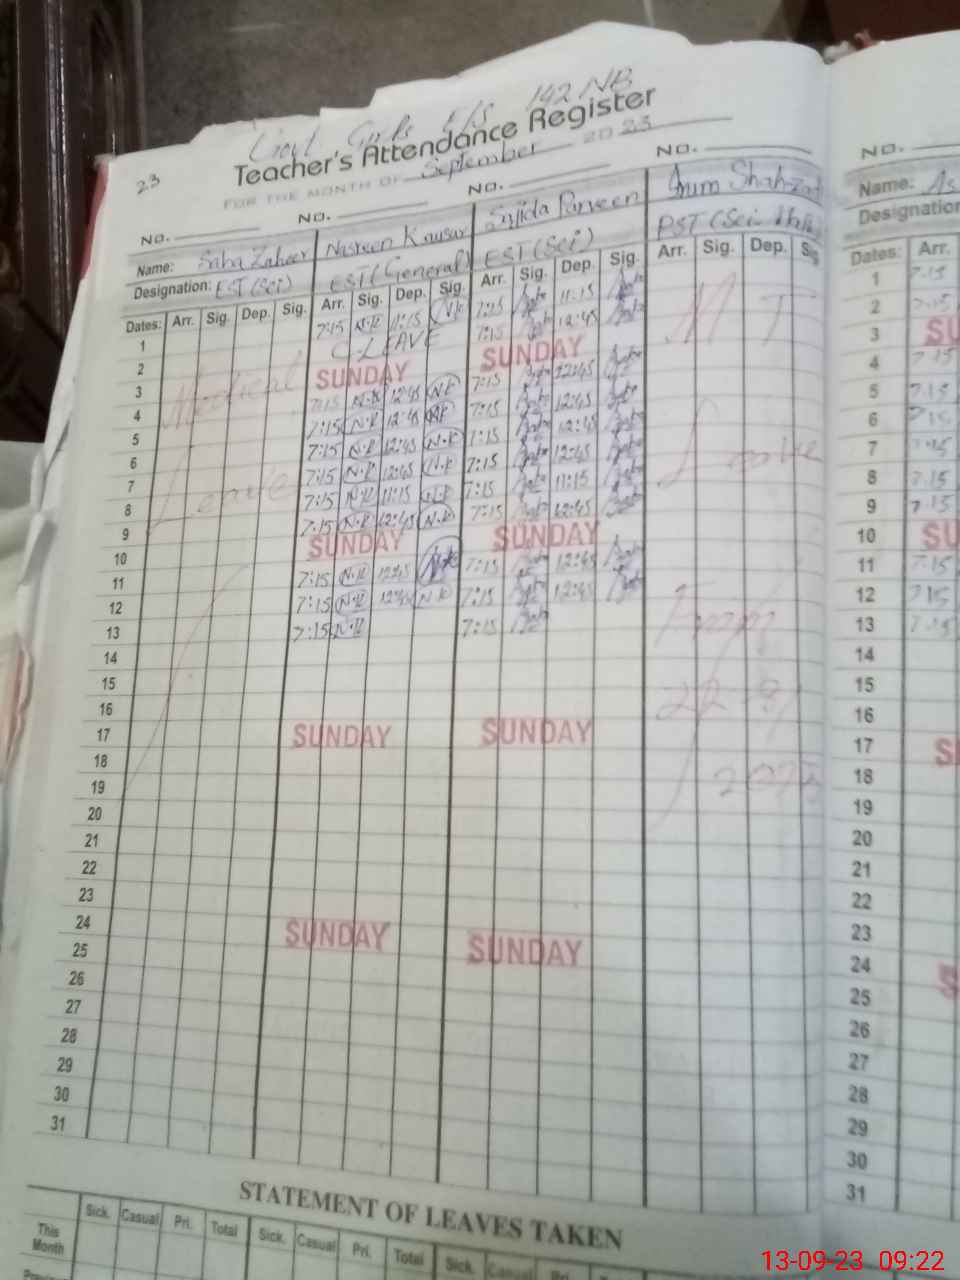 Govt Girls E/S 142 NB
Teacher's Attendance Register
23
FOR THE MONTH OF September 2023
No. No. No. No. No.
Name: Saba Zaheer Nasreen Kausar Sajida Parveen Anum Shahzadi Name: As
Designation: EST (Sci) EST (General) EST (Sci) PST (Sci. Math) Designation
Dates: Arr. Sig. Dep. Sig. Arr. Sig. Dep. Sig. Arr. Sig. Dep. Sig. Arr. Sig. Dep. Sig. Dates: Arr.
1 7:15 N.K 11:15 N.K 7:15 11:15 1 7:15
2 C. LEAVE 7:15 12:45 2 7:15
3 SUNDAY SUNDAY 3 SU
4 7:15 N.K 12:45 N.K 7:15 12:45 4 7:15
5 7:15 N.K 12:45 N.K 7:15 12:45 5 7:15
6 7:15 N.K 12:45 N.K 7:15 12:45 6 7:15
7 7:15 N.K 12:45 N.K 7:15 12:45 7 7:15
8 7:15 N.K 11:15 N.K 7:15 11:15 8 7:15
9 7:15 N.K 12:45 N.K 7:15 12:45 9 7:15
10 SUNDAY SUNDAY 10 SU
11 7:15 N.K 12:45 N.K 7:15 12:45 11 7:15
12 7:15 N.K 12:45 N.K 7:15 12:45 12 7:15
13 7:15 N.K 7:15 13 7:15
Medical Leave
M T Leave From
14 14
15 15
16 16
17 SUNDAY SUNDAY 17 S
18 18
19 19
20 20
21 21
22 22
23 23
24 SUNDAY SUNDAY 24 S
25 25
26 26
27 27
28 28
29 29
30 30
31 31
STATEMENT OF LEAVES TAKEN
Sick. Casual Pri. Total Sick. Casual Pri. Total Sick. Casual Pri.
This Month
13-09-23 09:22